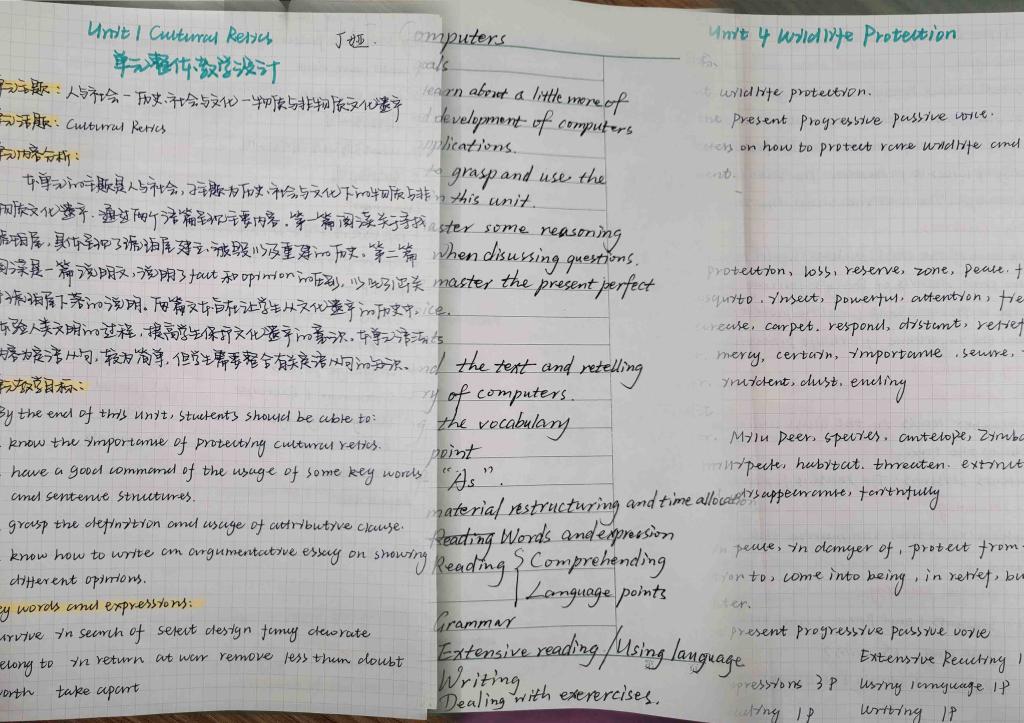 Unit 1 Cultural Relics
丁娅.
单元整体教学设计
单元主题: 人与社会—历史、社会与文化—物质与非物质文化遗产
单元话题: Cultural Relics
单元内容分析:
本单元的主题是人与社会, 子主题为历史、社会与文化下的物质与非
物质文化遗产. 通过两个语篇呈现主要内容. 第一篇阅读关于寻找
琥珀屋, 具体呈现了琥珀屋建立、被毁以及重建的历史. 第二篇
阅读是一篇说明文, 说明了fact和opinion的区别, 以此引出关
于琥珀屋下落的说明. 两篇文本旨在让学生从文化遗产的历史中,
体验人类文明的过程, 提高学生保护文化遗产的意识. 本单元语法
内容为定语从句, 较为简单, 但学生需要整合有关定语从句的知识.
单元教学目标:
By the end of this unit, students should be able to:
know the importance of protecting cultural relics.
have a good command of the usage of some key words
and sentence structures.
grasp the definition and usage of attributive clause.
know how to write an argumentative essay on showing
different opinions.
key words and expressions:
survive in search of select design fancy decorate
belong to in return at war remove less than doubt
worth take apart
Computers
goals
learn about a little more of
development of computers
applications.
to grasp and use the
in this unit.
master some reasoning
when disussing questions.
master the present perfect
ice.
the text and retelling
of computers.
the vocabulary
point
"As".
material restructuring and time allocation
Reading Words and expression
Reading { Comprehending
Language points
Grammar
Extensive reading / Using language
Writing
Dealing with exerercises.
Unit 4 Wildlife Protection
wildlife protection.
Present progressive passive voice.
on how to protect rare wildlife and
protection, loss, reserve, zone, peace.
mosquito. insect, powerful, attention,
carpet. respond, distant, relief
mercy, certain, importance. secure,
incident, dust, ending
Milu Deer, species, antelope,
millipede, habitat. threaten.
disappearance, faithfully
in peace, in danger of, protect from
come into being, in relief,
present progressive passive voice
Extensive Reading 1
expressions 3P using language 1P
1P writing 1P